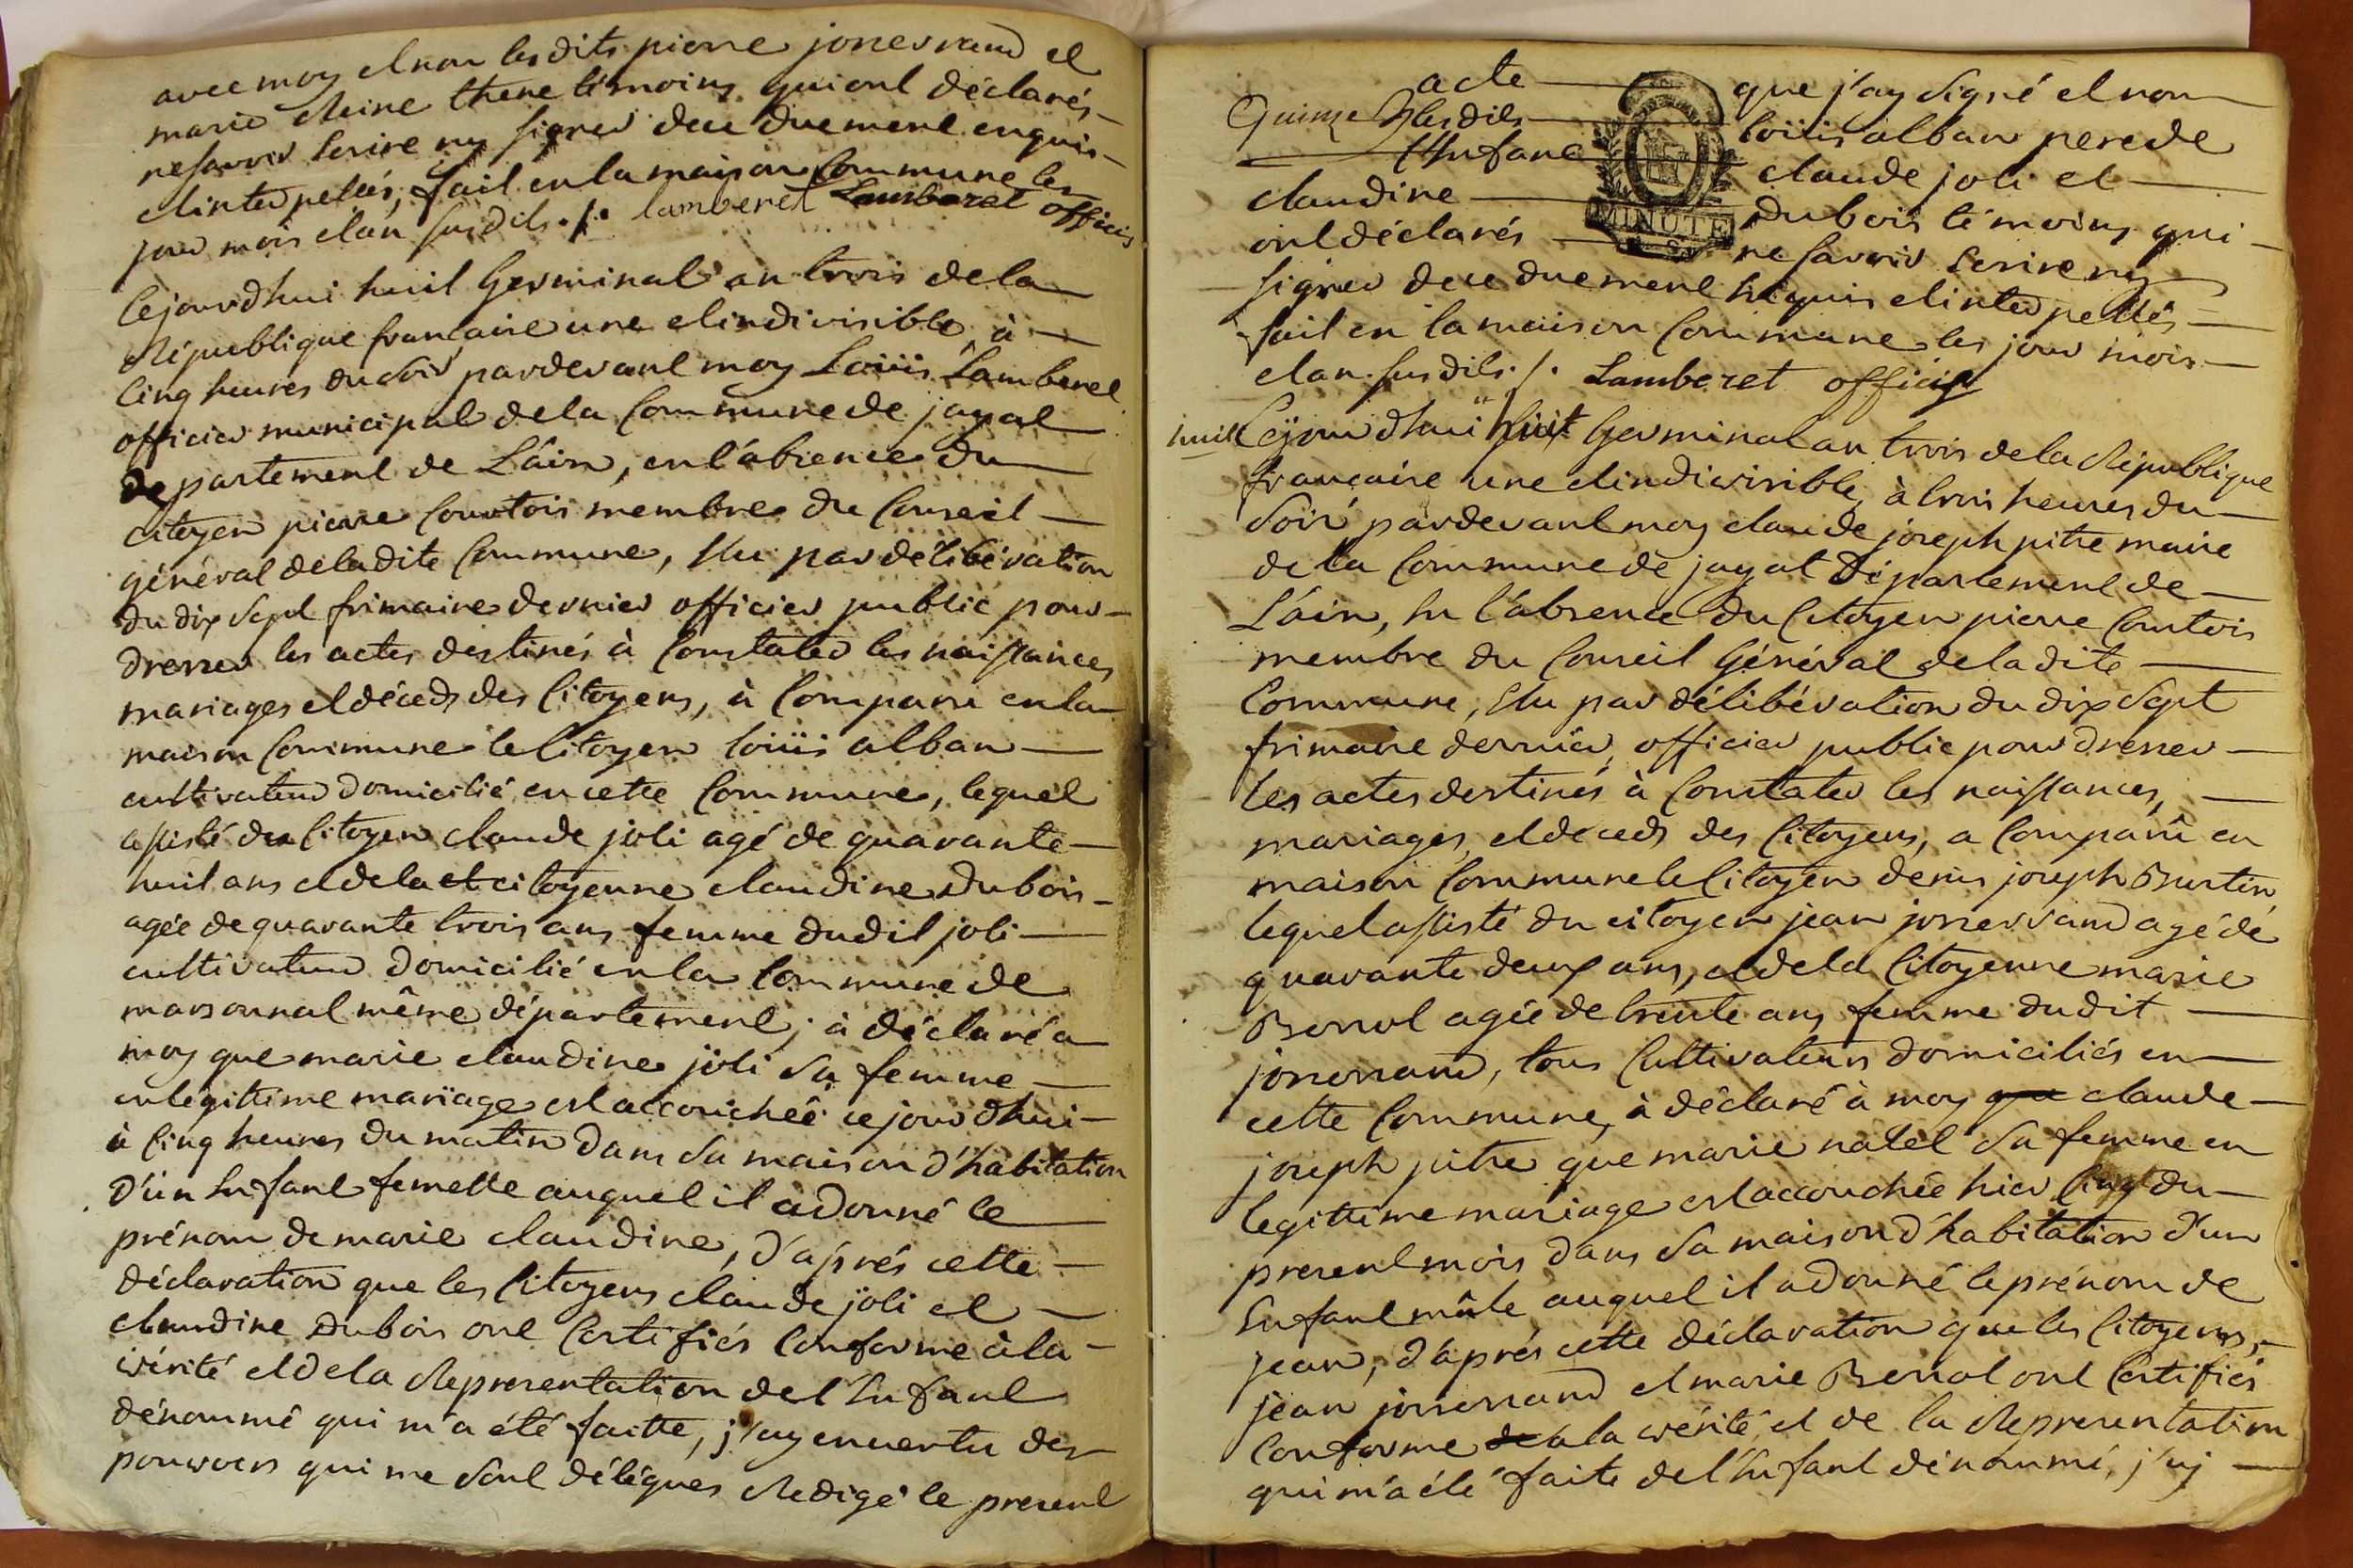 avec moy et non les dits pierre josserand et
marie Reine thene témoins qui ont déclarés
ne savoir Ecrire ny signer dece duement enquis
et interpellés, fait en la maison Commune les
jour mois et an susdits ./. lamberet Lamberet officie
Cejourdhui huit Germinal an trois de la
République francaise une et indivisible, à
Cinq heures du soir pardevant moy Loüis Lamberet
officier municipal de la Commune de jayat
departement de L'ain, en l'absence du
citoyen pierre Courtois membre du Conseil
général de la dite Commune, Elu par délibération
du dix sept frimaire dernier officier public pour
dresser les actes destinés à Constater les naissances
mariages et décéds des Citoyens, à Comparu en la
maison Commune le Citoyen loüis alban
cultivateur domicilié en cette Commune, lequel
assisté du Citoyen claude joli agé de quarante
huit ans et de la et citoyenne claudine Dubois
agée de quarante trois ans femme dudit joli
cultivateur domicilié en la Commune de
marsonnat même département; à déclaré a
moy que marie claudine joli sa femme
en légittime mariage est accouchéé ce jourd'hui
à Cinq heures du matin dans sa maison d'habitation
d'un Enfant femelle auquel il a donné le
prénom de marie claudine, d'aprés cette
déclaration que les Citoyens claude joli et
claudine Dubois ont Certifiés Conforme à la
vérité et de la Representation de l'Enfant
dénommé qui m'a été faitte, j'ay en vertu des
pouvoirs qui me sont délégues Redigé le present
acte que j'ay signé et non
Quinze lesdits loüis alban pere de
l'Enfant claude joli et
claudine Dubois témoins qui
ont déclarés ne savoir Ecrire ny
MINUTE
signer dece duement Enquis et interpellés
fait en la maison Commune les jour mois
et an susdits ./. Lamberet officie
huit Cejourdhui huit Germinal an trois de la République
francaise une et indivisible, à trois heures du
soir pardevant moy claude joseph pitre maire
de la Commune de jayat Département de
L'ain, En l'absence du Citoyen pierre Courtois
membre du Conseil Général de la dite
Commune, Elu par délibération du dix sept
frimaire dernier, officier public pour dresser
les actes destinés à Constater les naissances,
mariages, et deceds des Citoyens, a Comparû en
maison Commune le Citoyen denis joseph Burtin,
lequel assisté du citoyen jean josserand agé de
quarante deux ans, et de la Citoyenne marie
Berrol agée de trente ans femme du dit
josserand, tous Cultivateurs domiciliés en
cette Commune, à déclaré à moy que claude
joseph pitre que marie natel sa femme en
legittime mariage est accouchée hier Sept du
present mois dans sa maison d'habitation d'un
Enfant mâle auquel il a donné le prénom de
jean, d'aprés cette déclaration que les Citoyens,
jean josserand et marie Berrol ont Certifiés
Conforme de à la vérité, et de la Representation
qui m'a été faite de l'Enfant dénommé, j'ay